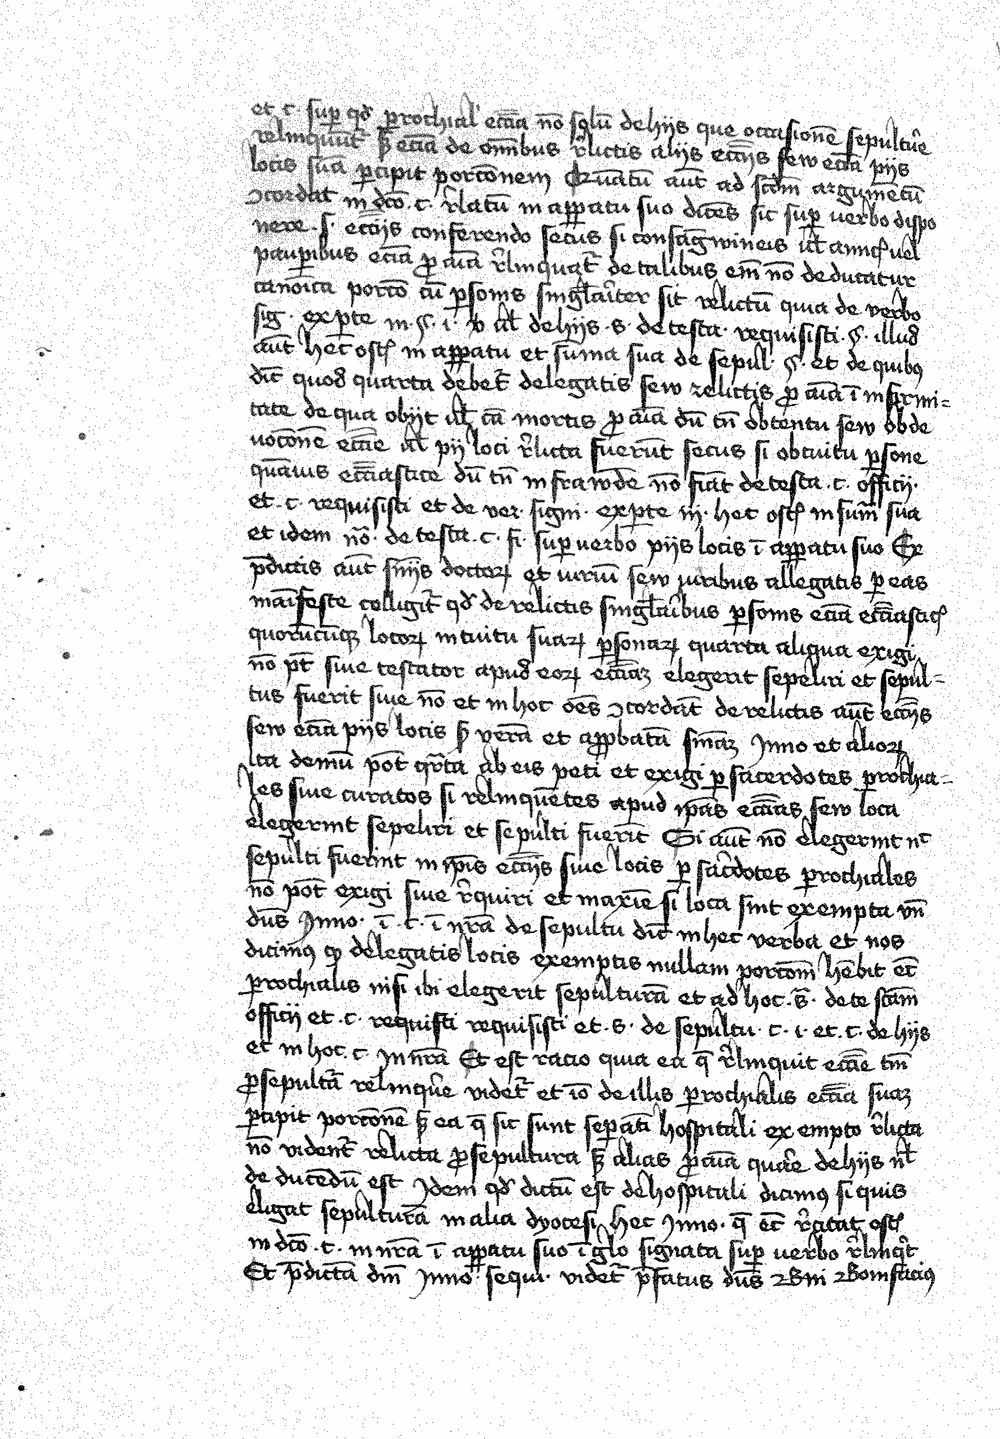 et .c. sup̱ qd̕ ꝑrochial̕ ecc̄ia nō solū de hijs que occasione sepultur̄e
relinquūt̕ s̄ꝫ eciā de om̄ibus r̕lictis alijs ecc̄ijs sew eciā pijs
locis suā ꝑcipit porcōnem Quātū aut̄ ad scd̄m argumētū
ↄcordat in dc̄o .c. r̕latū in apꝑatu suo dicēs sic sup̱ uerbo dispo
nere .s. ecc̄ijs conferendo secus si consāgwineis ul̕ amicꝭ uel
pauꝑibus eciā ꝓ aīa r̕linquat̕ de talibus em̄ nō deducatur
canoīca porco̅ cū ꝑsonis singl̕ar̕iter sit relictū quia de verbo
sig. ex ꝑte in .§. i. v̕ ul̕ de hijs .s. de testa. requisisti .§. illud
aut̄ hec ostꝭ in apꝑatu et sūma sua de sepul̕ .§. et de quibꝰ
dic̄ quod quarta debet̕ delegatis sew relictis ꝓ aīa ī infirmi=
tate de qua obijt ul̕ cā mortis ꝓ aīa dū tn̄ obtentu sew ob de
uocōnem ecc̄ie ul̕ pij loci r̕licta fuerūt secus si obtuitu ꝑsone
quāuis ecc̄iastice dū tn̄ in frawdē nō fiāt de testa .c. officij.
et .c. requisisti et de ver. sign. ex ꝑte iij. hec ostꝭ in sum̄ sua
et idem nō. de testa .c. fi. sup̱ uerbo pijs locis ī apꝑatu suo Ex
p̄dictis aut̄ sn̄ijs doctoꝝ et iuriū sew iuribus allegatis ꝑ eas
manifeste colligit̕ qd̕ de relictis singl̕aribus ꝑsonis eciā ecc̄iasticꝭ
quorūcūqꝫ locoꝝ intuitu suaꝝ ꝑsonaꝝ quarta aliqua exigi
nō pt̄ siue testator apud eoꝝ ecc̄iaꝫ elegerit sepeliri et sepul=
tus fuerit siue nō et in hoc ōes ↄcordāt de relictis aut̄ ecc̄ijs
sew eciā pijs locis scd̕ verā et apꝓbatā sn̄iaꝫ Inno et alioꝝ
ita demū pōt qr̄ta ab eis peti et exigi ꝑ sacerdotes ꝑrochia=
les siue curatos si relinquētes apud ip̄as ecc̄ias sew loca
elegerint sepeliri et sepulti fuerīt Si aut̄ nō elegerint nc̄
sepulti fuerint in ip̄is ecc̄ijs siue locis ꝑ sac̕dotes ꝑrochiales
nō pōt exigi siue r̕quiri et maxīe si loca sint exempta vn̄
dn̄s Inno. ī .c. ī nr̄a de sepultu dic̄ in hec verba et nos
dicimꝰ ꝙ delegatis locis exemptis nullam porcōm̄ hēbit ec̄
ꝑrochialis nisi ibi elegerit sepulturā et ad hoc .s̄. de testam̄
officij et .c. requisti requisisti et .s. de sepultu .c. i. et .c. de hijs
et in hoc .c. In nr̄a Et est racio quia ea q̄ r̕linquit ecc̄ie tm̄
ꝓ sepult̄a relinque̕ videt̕ et iō de illis ꝑrochialis ecc̄ia suaꝫ
ꝑcipit porcōnē s̄ꝫ ea q̄ sic sunt seꝑati hospitali exempto r̕licta
nō vident̕ relicta ꝓ sepultura s̄ꝫ alias ꝓ aīa qua̕e de hijs nl̕
deducēdū est Idem qd̕ dictū est de hospitali dicimꝰ si quis
eligat sepulturā in alia dyocesi hec Inno. q̄ ec̄ r̕citat ostꝭ
in dc̄o .c. in nr̄a ī apꝑatu suo ī glo signata sup̱ uerbo r̕linq̕t
Et p̄dictā dn̄i Inno. sequi. videt̕ p̄fatus dn̄s Bn̄i Bonifacius